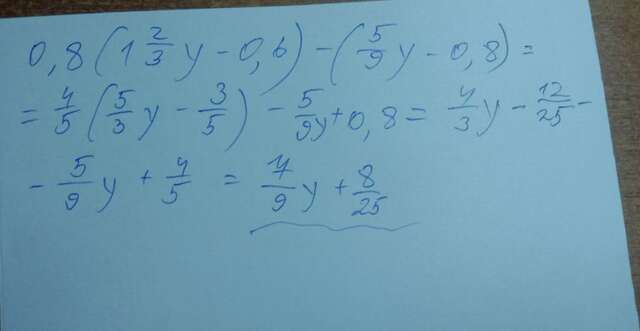 0,8(1 2/3 y - 0,6) - (5/9 y - 0,8) =
= 4/5 (5/3 y - 3/5) - 5/9 y + 0,8 = 4/3 y - 12/25 -
- 5/9 y + 4/5 = 7/9 y + 8/25